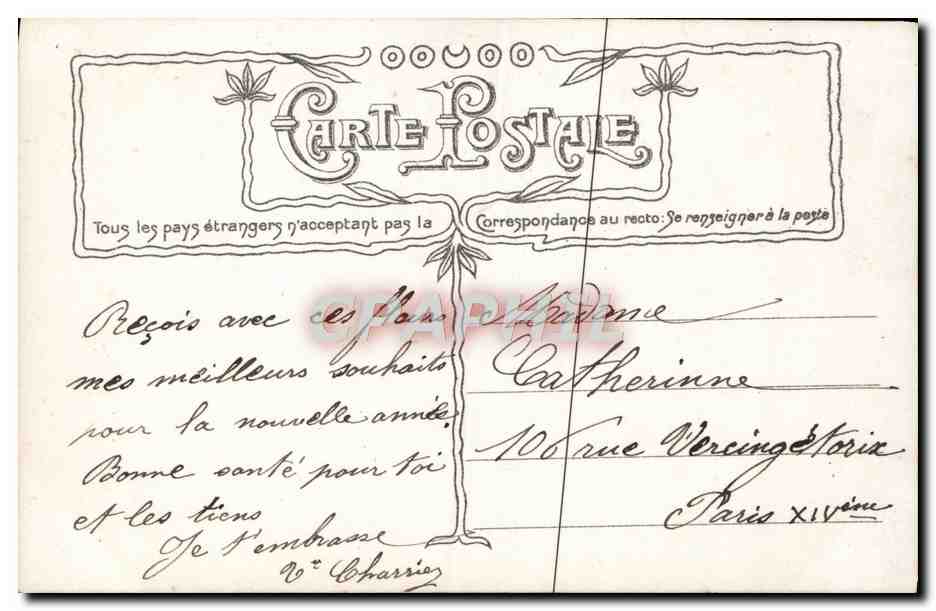 CARTE POSTALE
Tous les pays étrangers n'acceptant pas la Correspondance au recto: Se renseigner à la poste
Reçois avec ces fleurs
mes meilleurs souhaits
pour la nouvelle année.
Bonne santé pour toi
et les tiens
Je t'embrasse
Vve Charrier
Madame
Catherinne
106 rue Vercingétorix
Paris XIVème
GRAPHIL